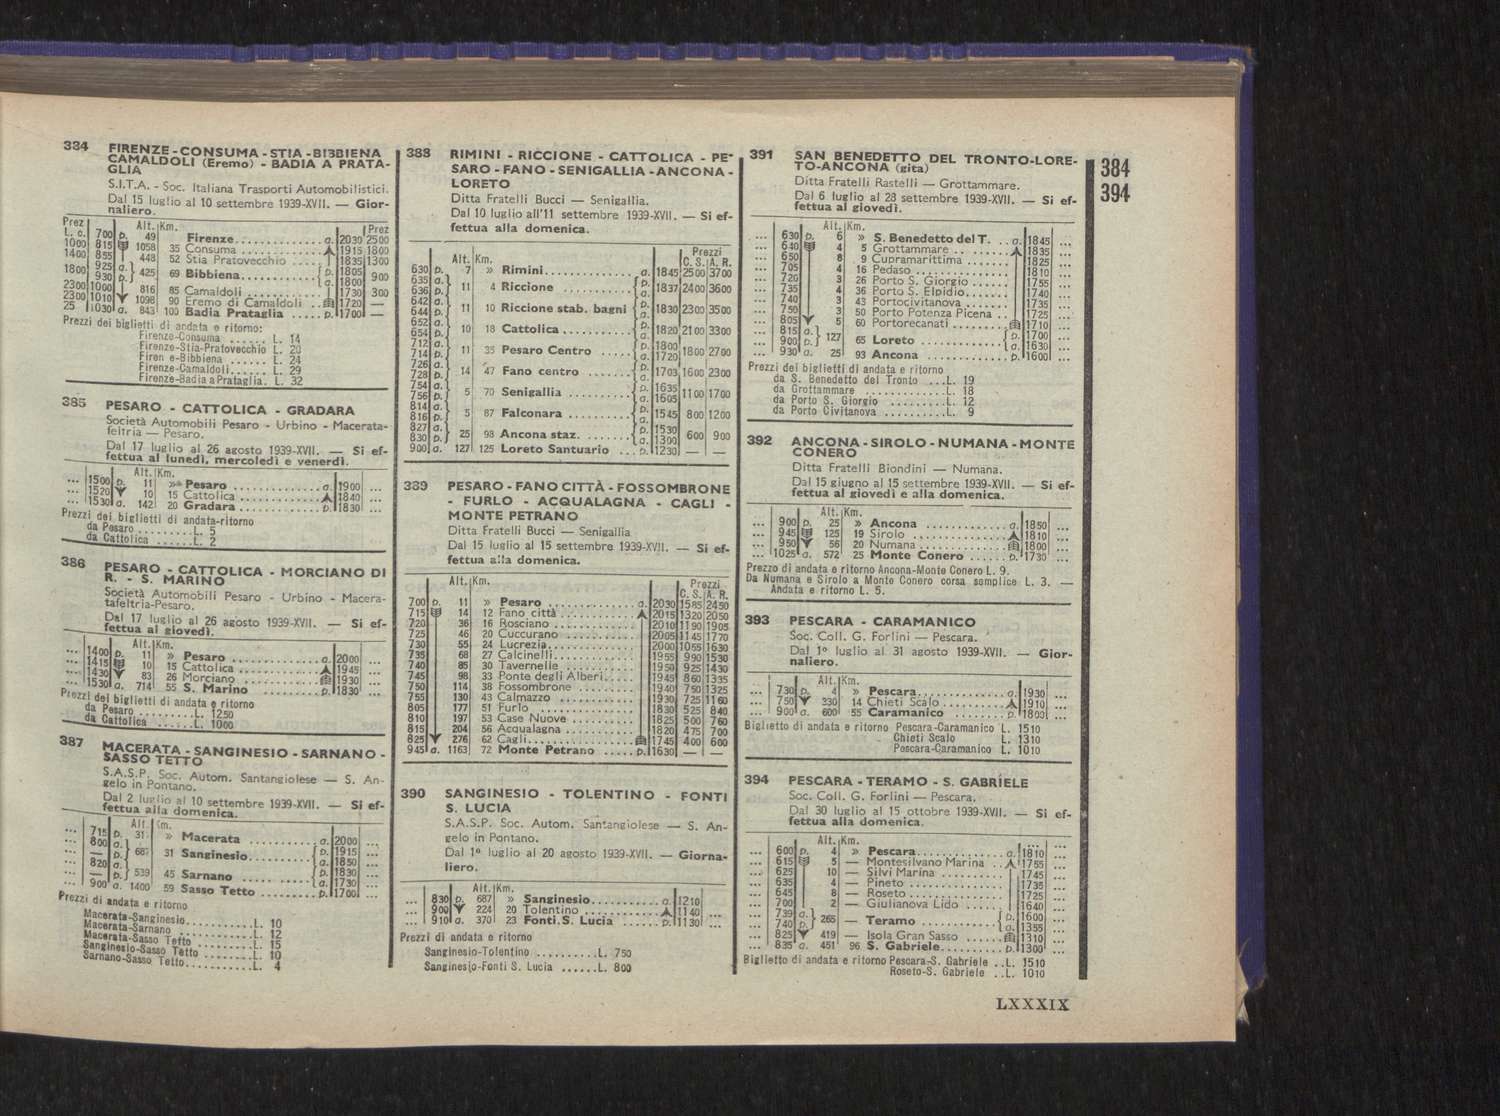 334 FIRENZE - CONSUMA - STIA - BIBBIENA
CAMALDOLI (Eremo) - BADIA A PRATA-
GLIA
S.I.T.A. - Soc. Italiana Trasporti Automobilistici.
Dal 15 luglio al 10 settembre 1939-XVII. — Gior-
naliero.
Prez Alt. Km. Prez
L. c. 700 p. 49 Firenze a. 2030 2500
1000 815 1058 35 Consuma 1915 1800
1400 855 448 52 Stia Pratovecchio 1835 1300
1800 925 a. 930 p. 425 69 Bibbiena p. 1805 a. 1800 900
2300 1000 816 85 Camaldoli 1730 300
2300 1010 1098 90 Eremo di Camaldoli 1720 —
25 1030 a. 843 100 Badia Prataglia p. 1700 —
Prezzi dei biglietti di andata e ritorno:
Firenze-Consuma L. 14
Firenze-Stia-Pratovecchio L. 20
Firen e-Bibbiena L. 24
Firenze-Camaldoli L. 29
Firenze-Badia a Prataglia. L. 32
385 PESARO - CATTOLICA - GRADARA
Società Automobili Pesaro - Urbino - Macerata-
feltria — Pesaro.
Dal 17 luglio al 26 agosto 1939-XVII. — Si ef-
fettua al lunedì, mercoledì e venerdì.
Alt. Km.
... 1500 p. 11 » Pesaro a. 1900 ...
... 1520 10 15 Cattolica 1840 ...
... 1530 a. 142 20 Gradara p. 1830 ...
Prezzi dei biglietti di andata-ritorno
da Pesaro L. 5
da Cattolica L. 2
386 PESARO - CATTOLICA - MORCIANO DI
R. - S. MARINO
Società Automobili Pesaro - Urbino - Macera-
tafeltria-Pesaro.
Dal 17 luglio al 26 agosto 1939-XVII. — Si ef-
fettua al giovedì.
Alt. Km.
... 1400 p. 11 » Pesaro a. 2000 ...
... 1415 10 15 Cattolica 1945 ...
... 1430 83 26 Morciano 1930 ...
... 1530 a. 714 55 S. Marino p. 1830 ...
Prezzi dei biglietti di andata e ritorno
da Pesaro L. 1250
da Cattolica L. 1000
387 MACERATA - SANGINESIO - SARNANO -
SASSO TETTO
S.A.S.P. Soc. Autom. Santangiolese — S. An-
gelo in Pontano.
Dal 2 luglio al 10 settembre 1939-XVII. — Si ef-
fettua alla domenica.
Alt. Km.
... 715 p. 31 » Macerata a. 2000 ...
... 800 a. — p. 687 31 Sanginesio p. 1915 a. 1850 ...
... 820 a. — p. 539 45 Sarnano p. 1830 a. 1730 ...
... 900 a. 1400 59 Sasso Tetto p. 1700 ...
Prezzi di andata e ritorno
Macerata-Sanginesio L. 10
Macerata-Sarnano L. 12
Macerata-Sasso Tetto L. 15
Sanginesio-Sasso Tetto L. 10
Sarnano-Sasso Tetto L. 4
388 RIMINI - RICCIONE - CATTOLICA - PE-
SARO - FANO - SENIGALLIA - ANCONA -
LORETO
Ditta Fratelli Bucci — Senigallia.
Dal 10 luglio all'11 settembre 1939-XVII. — Si ef-
fettua alla domenica.
Prezzi
Alt. Km. C. S. A. R.
630 p. 7 » Rimini a. 1845 2500 3700
635 a. 636 p. 11 4 Riccione p. a. 1837 2400 3600
642 a. 644 p. 11 10 Riccione stab. bagni p. a. 1830 2300 3500
652 a. 654 p. 10 18 Cattolica p. a. 1820 2100 3300
712 a. 714 p. 11 35 Pesaro Centro p. 1800 a. 1720 1800 2700
726 a. 728 p. 14 47 Fano centro p. a. 1703 1600 2300
754 a. 756 p. 5 70 Senigallia p. 1635 a. 1605 1100 1700
814 a. 816 p. 5 87 Falconara p. a. 1545 800 1200
827 a. 830 p. 25 98 Ancona staz. p. 1530 a. 1300 600 900
900 a. 127 125 Loreto Santuario p. 1230 — —
339 PESARO - FANO CITTÀ - FOSSOMBRONE
- FURLO - ACQUALAGNA - CAGLI -
MONTE PETRANO
Ditta Fratelli Bucci — Senigallia
Dal 15 luglio al 15 settembre 1939-XVII. — Si ef-
fettua alla domenica.
Alt. Km. Prezzi
C. S. A. R.
700 p. 11 » Pesaro a. 2030 1585 2450
715 14 12 Fano città 2015 1320 2050
720 36 16 Rosciano 2010 1190 1905
725 46 20 Cuccurano 2005 1145 1770
730 55 24 Lucrezia 2000 1055 1630
735 68 27 Calcinelli 1955 990 1530
740 85 30 Tavernelle 1950 925 1430
745 98 33 Ponte degli Alberi 1945 860 1335
750 114 38 Fossombrone 1940 750 1325
755 130 43 Calmazzo 1930 725 1160
805 177 51 Furlo 1830 525 840
810 197 53 Case Nuove 1825 500 760
815 204 56 Acqualagna 1820 475 700
825 276 62 Cagli 1745 400 600
945 a. 1163 72 Monte Petrano p. 1630 — —
390 SANGINESIO - TOLENTINO - FONTI
S. LUCIA
S.A.S.P. Soc. Autom. Santangiolese — S. An-
gelo in Pontano.
Dal 1º luglio al 20 agosto 1939-XVII. — Giorna-
liero.
Alt. Km.
... 830 p. 687 » Sanginesio a. 1210
... 900 224 20 Tolentino 1140 ...
... 910 a. 370 23 Fonti.S. Lucia p. 1130 ...
Prezzi di andata e ritorno
Sanginesio-Tolentino L. 750
Sanginesio-Fonti S. Lucia L. 800
391 SAN BENEDETTO DEL TRONTO-LORE-
TO-ANCONA (gita)
Ditta Fratelli Rastelli — Grottammare.
Dal 6 luglio al 28 settembre 1939-XVII. — Si ef-
fettua al giovedì.
Alt. Km.
... 630 p. 6 » S. Benedetto del T. a. 1845 ...
... 640 4 5 Grottammare 1835 ...
... 650 8 9 Cupramarittima 1825 ...
... 705 4 16 Pedaso 1810 ...
... 720 3 26 Porto S. Giorgio 1755 ...
... 735 4 36 Porto S. Elpidio 1740 ...
... 740 3 43 Portocivitanova 1735 ...
... 750 3 50 Porto Potenza Picena 1725 ...
... 805 5 60 Portorecanati 1710 ...
... 815 a. 900 p. 127 65 Loreto p. 1700 a. 1630 ...
... 930 a. 25 93 Ancona p. 1600 ...
Prezzi dei biglietti di andata e ritorno
da S. Benedetto del Tronto L. 19
da Grottammare L. 18
da Porto S. Giorgio L. 12
da Porto Civitanova L. 9
392 ANCONA - SIROLO - NUMANA - MONTE
CONERO
Ditta Fratelli Biondini — Numana.
Dal 15 giugno al 15 settembre 1939-XVII. — Si ef-
fettua al giovedì e alla domenica.
Alt. Km.
... 900 p. 25 » Ancona a. 1850 ...
... 945 125 19 Sirolo 1810 ...
... 950 56 20 Numana 1800 ...
... 1025 a. 572 25 Monte Conero p. 1730 ...
Prezzo di andata e ritorno Ancona-Monte Conero L. 9.
Da Numana e Sirolo a Monte Conero corsa semplice L. 3. —
Andata e ritorno L. 5.
393 PESCARA - CARAMANICO
Soc. Coll. G. Forlini — Pescara.
Dal 1º luglio al 31 agosto 1939-XVII. — Gior-
naliero.
Alt. Km.
... 730 p. 4 » Pescara a. 1930 ...
... 750 330 14 Chieti Scalo 1910 ...
... 900 a. 600 55 Caramanico p. 1800 ...
Biglietto di andata e ritorno Pescara-Caramanico L. 1510
Chieti Scalo L. 1310
Pescara-Caramanico L. 1010
394 PESCARA - TERAMO - S. GABRIELE
Soc. Coll. G. Forlini — Pescara.
Dal 30 luglio al 15 ottobre 1939-XVII. — Si ef-
fettua alla domenica.
Alt. Km.
... 600 p. 4 » Pescara a. 1810 ...
... 615 5 — Montesilvano Marina 1755 ...
... 625 10 — Silvi Marina 1745 ...
... 635 4 — Pineto 1735 ...
... 645 8 — Roseto 1725 ...
... 700 2 — Giulianova Lido 1640 ...
... 739 a. 740 p. 265 — Teramo p. 1600 a. 1355 ...
... 825 419 — Isola Gran Sasso 1310 ...
... 835 a. 451 96 S. Gabriele p. 1300 ...
Biglietto di andata e ritorno Pescara-S. Gabriele L. 1510
Roseto-S. Gabriele L. 1010
384
394
LXXXIX